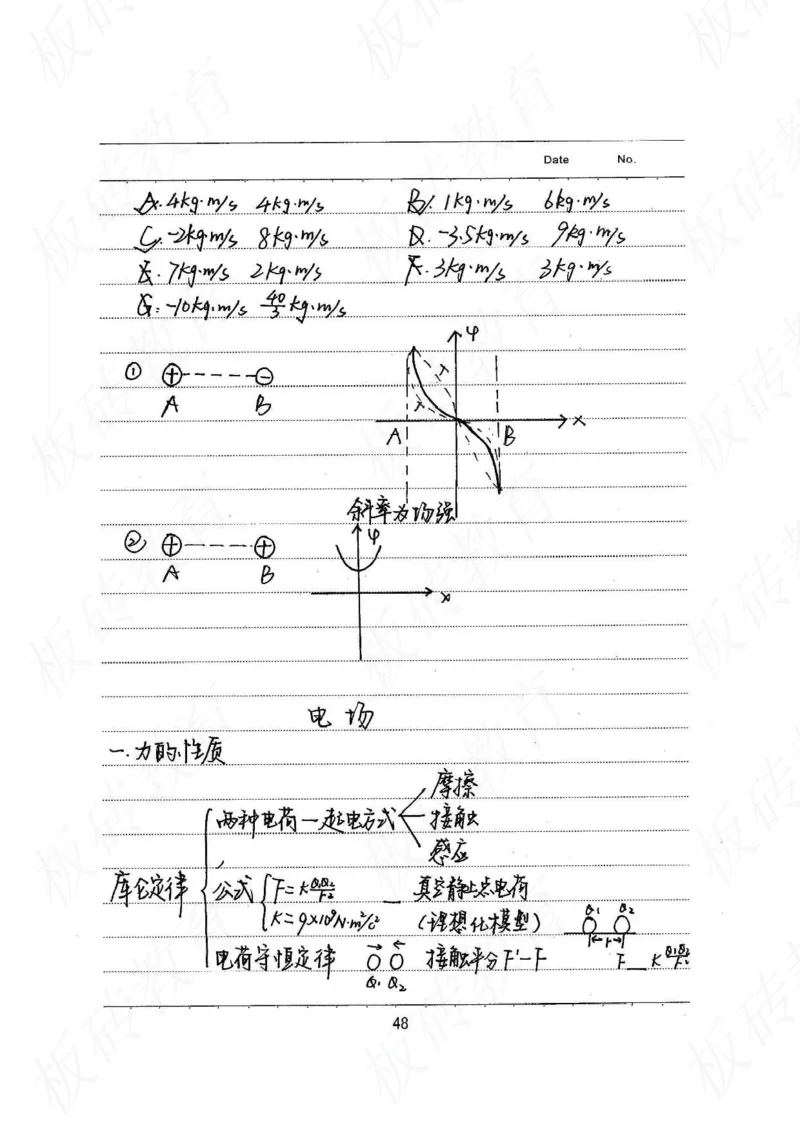 Date No.
A. 4kg·m/s 4kg·m/s B. 1kg·m/s 6kg·m/s
C. -2kg·m/s 8kg·m/s D. -3.5kg·m/s 9kg·m/s
E. 7kg·m/s 2kg·m/s F. 3kg·m/s 3kg·m/s
G. -10kg·m/s 40/3 kg·m/s
φ
① + - - - - - −
A B
A B x
斜率为场强
② + - - - - - +
φ
A B
x
电场
一.力的性质
摩擦
两种电荻一起电方式 接触
感应
库仑定律 公式 F=KQ₁Q₂/r² — 真空静止点电荷
K=9×10⁹N·m²/c² (理想化模型) Q₁ Q₂
r
电荷守恒定律 接触平分F'-F F__KQ₁Q₂/r²
Q₁ Q₂
48
板砖教育